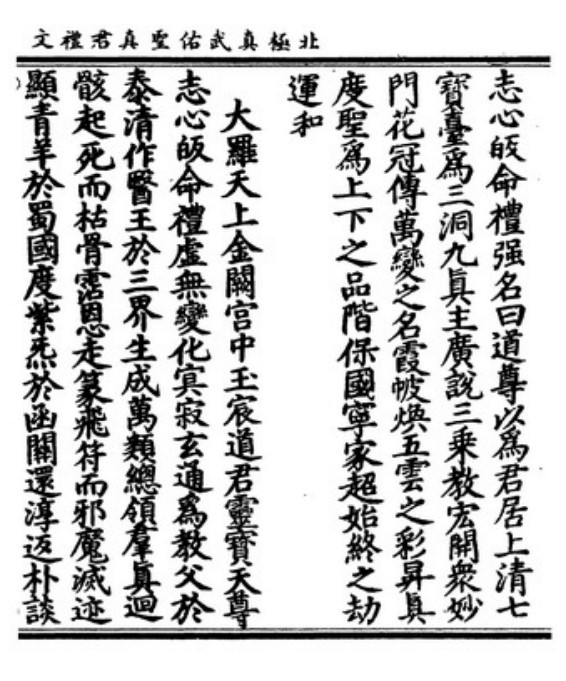 北極真武佑聖真君禮文
志心皈命禮強名曰道尊以爲君居上清七
寳臺爲三洞九眞主廣說三乗教宏開衆妙
門花冠傳萬變之名霞帔煥五雲之彩昇眞
度聖爲上下之品階保國寧家超始終之劫
運和
大羅天上金闕宫中玉宸道君靈寳天尊
志心皈命禮虛無變化㝠寂玄通爲教父於
泰清作醫王於三界生成萬類總領羣眞迴
骸起死而枯骨霑恩走篆飛符而邪魔滅迹
顯青羊於蜀國度紫炁於函關還淳返朴談